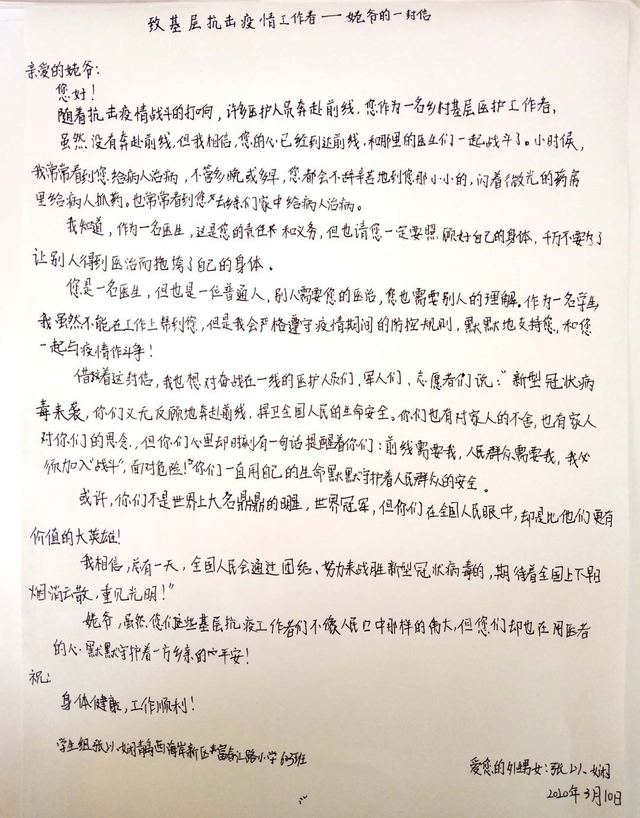 致基层抗击疫情工作者——姥爷的一封信
亲爱的姥爷:
您好!
随着抗击疫情战斗的打响,许多医护人员奔赴前线,您作为一名乡村基层医护工作者,
虽然没有奔赴前线,但我相信,您的心已经到达前线,和那里的医生们一起战斗了。小时候,
我常常看到您给病人治病,不管多晚或多早,您都会不辞辛苦地到您那小小的,闪着微光的药房
里给病人抓药。也常常看到您去乡亲们家中给病人治病。
我知道,作为一名医生,这是您的责任和义务,但也请您一定要照顾好自己的身体,千万不要为了
让别人得到医治而拖垮了自己的身体。
您是一名医生,但也是一位普通人,别人需要您的医治,您也需要别人的理解。作为一名学生
我虽然不能在工作上帮到您,但是我会严格遵守疫情期间的防控规则,默默地支持您,和您
一起与疫情作斗争!
借着这封信,我也想对奋战在一线的医护人员们、军人们、志愿者们说:“新型冠状病
毒来袭,你们义无反顾地奔赴前线,捍卫全国人民的生命安全。你们也有对家人的不舍,也有家人
对你们的思念,但你们心里却时刻有一句话提醒着你们:前线需要我,人民群众需要我,我必
须加入“战斗”,面对危险!”你们一直用自己的生命默默守护着人民群众的安全。
或许,你们不是世界上大名鼎鼎的明星,世界冠军,但你们在全国人民眼中,却是比他们更有
价值的大英雄!
我相信,总有一天,全国人民会通过团结、努力来战胜新型冠状病毒的,期待着全国上下早日
烟消云散,重见光明!”
姥爷,虽然您们这些基层抗疫工作者们不像人民口中那样的伟大,但您们却也在用医者
的心默默守护着一方乡亲的心平安!
祝:
身体健康,工作顺利!
学生组张以娴青岛西海岸新区富春江路小学6.3班
爱您的外甥女:张以娴
2020年3月10日